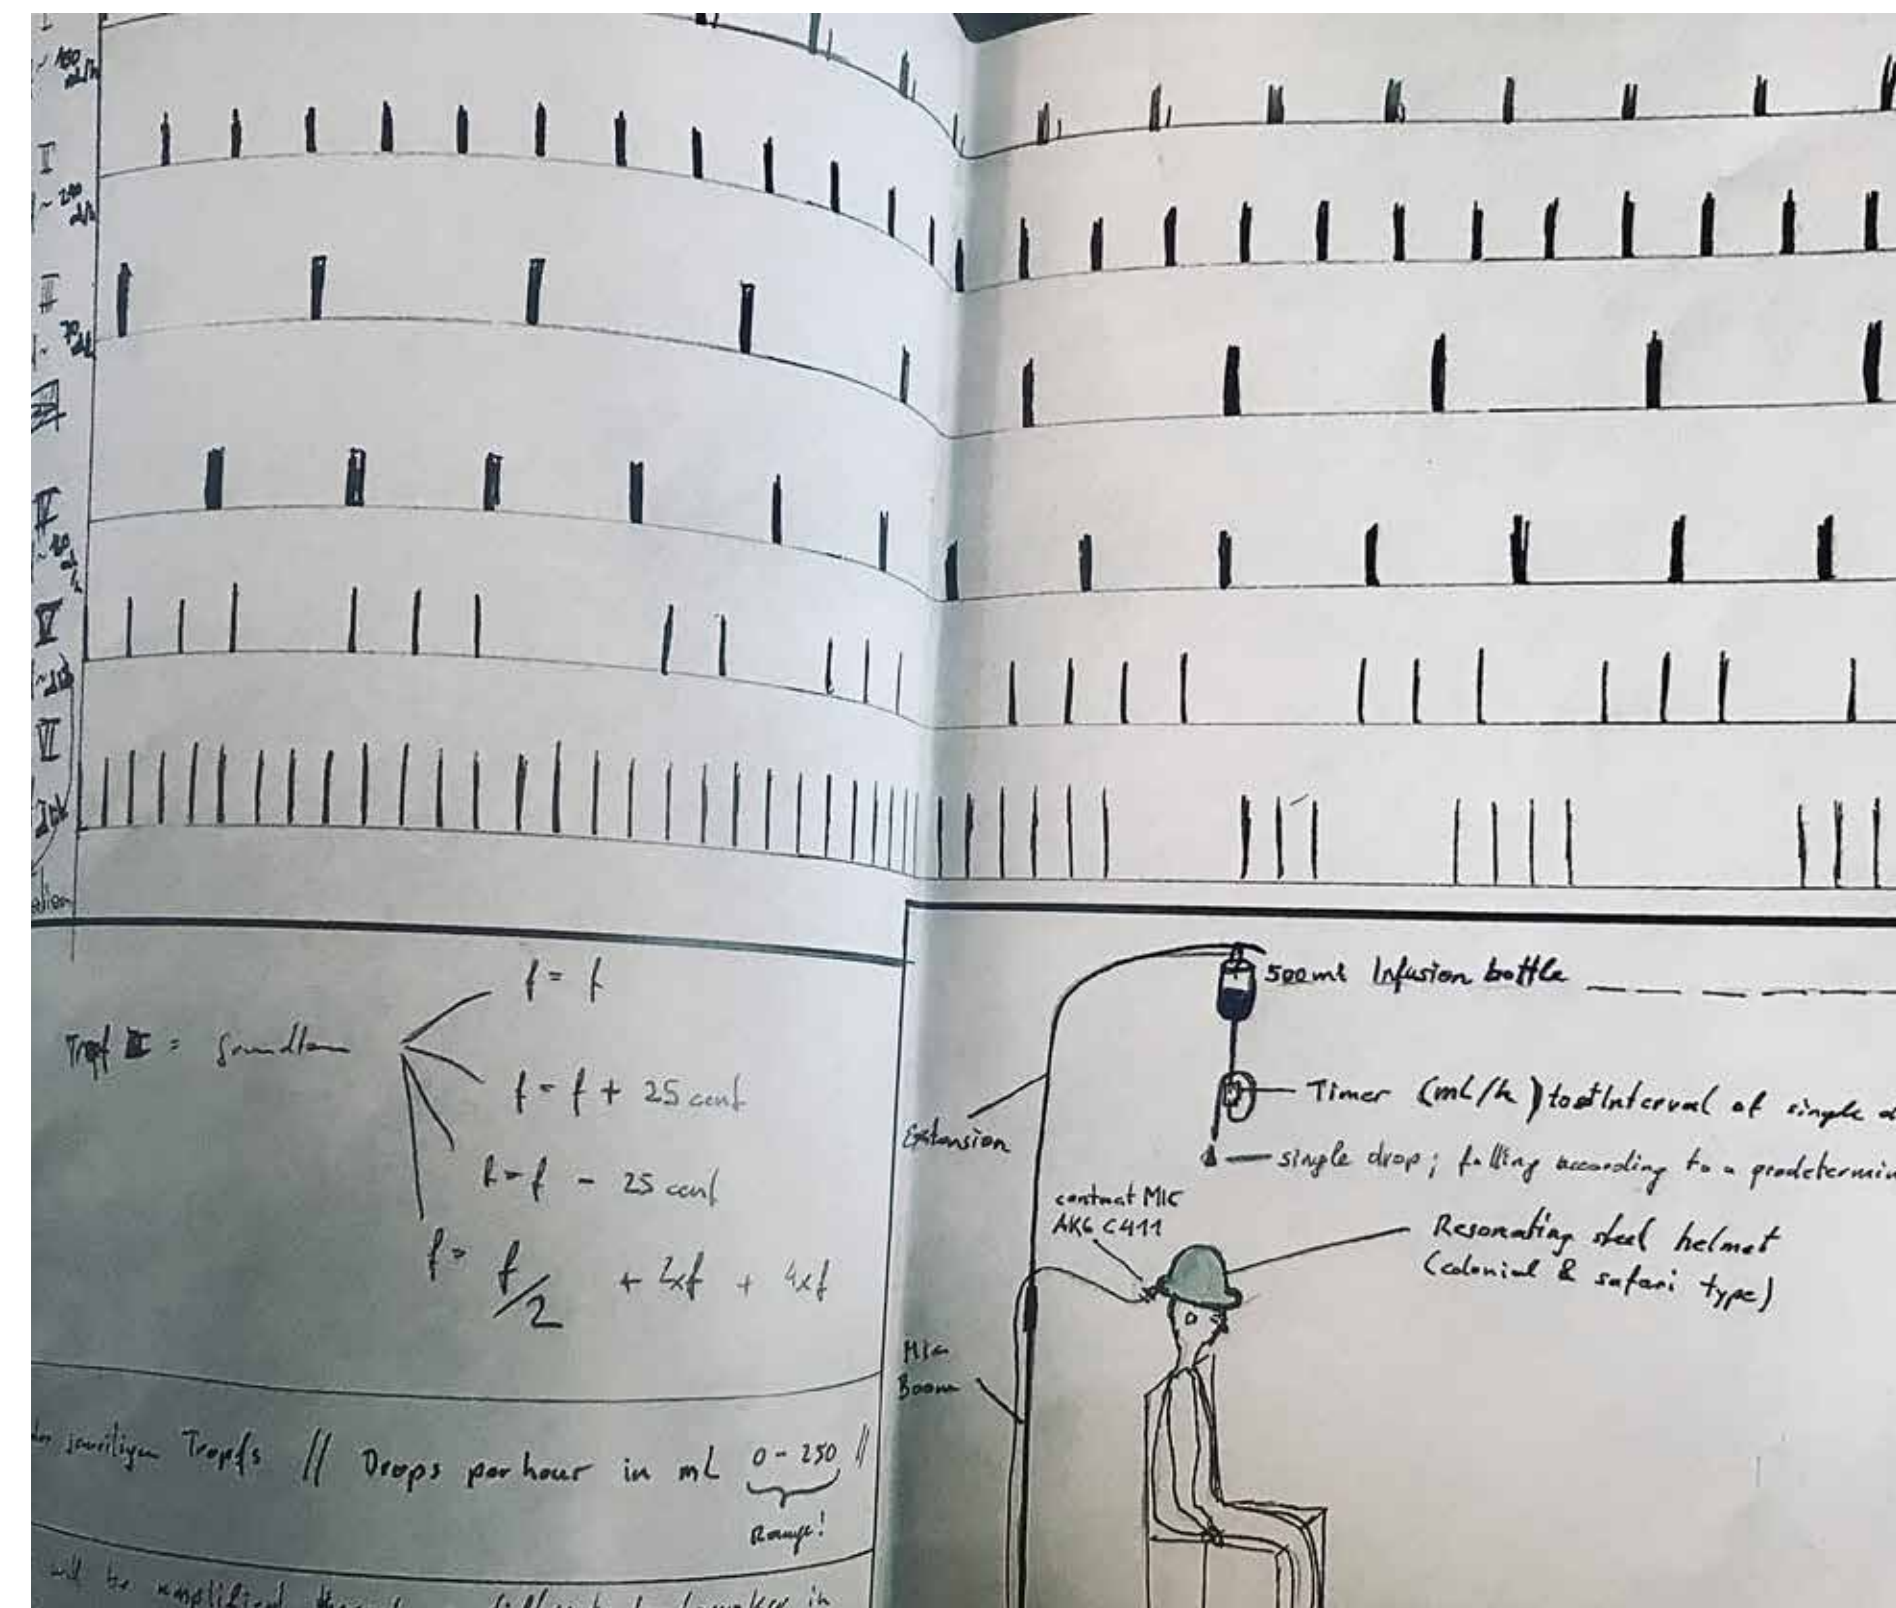 I
~ 180
ml/h
II
~ 240
ml/h
III
~ 70
IV
V
VI
Tropf = Grundton
f = f
f = f + 25 cent
f = f - 25 cent
f = f/2 + 2xf + 4xf
jeweiligen Tropfs // Drops per hour in mL 0 - 250 //
Range!
will be amplified in
500 ml Infusion bottle
Timer (mL/h) Interval of single
single drop; falling according to a
Extension
contact MIC
AKG C411
Resonating steel helmet
(colonial & safari type)
Mic
Boom